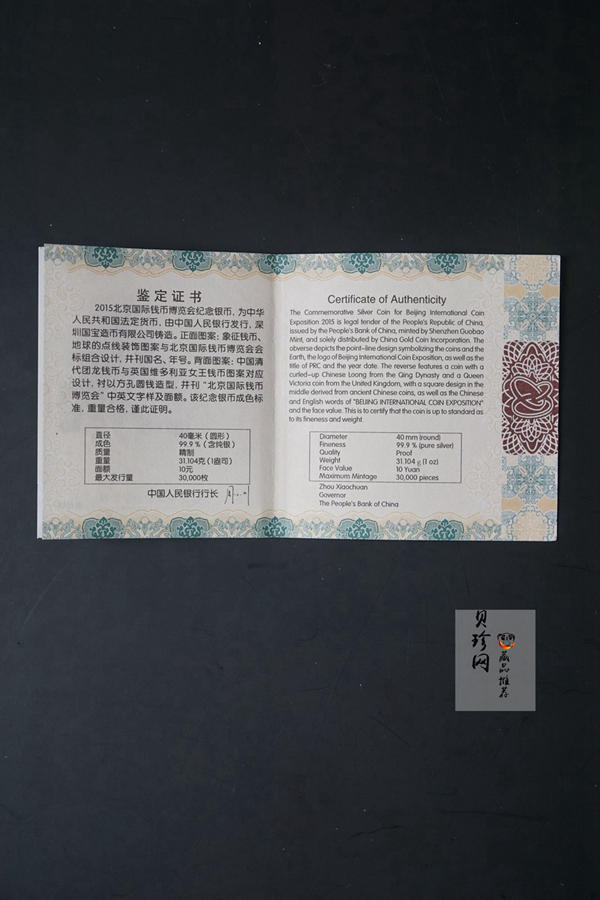 鉴定证书
2015北京国际钱币博览会纪念银币，为中华
人民共和国法定货币，由中国人民银行发行，深
圳国宝造币有限公司铸造。正面图案：象征钱币、
地球的点线装饰图案与北京国际钱币博览会会
标组合设计，并刊国名、年号。背面图案：中国清
代团龙钱币与英国维多利亚女王钱币图案对应
设计，衬以方孔圆钱造型，并刊“北京国际钱币
博览会”中英文字样及面额。该纪念银币成色标
准，重量合格，谨此证明。
直径 40毫米（圆形）
成色 99.9％（含纯银）
质量 精制
重量 31.104克（1盎司）
面额 10元
最大发行量 30,000枚
中国人民银行行长
Certificate of Authenticity
The Commemorative Silver Coin for Beijing International Coin
Exposition 2015 is legal tender of the People's Republic of China,
issued by the People's Bank of China, minted by Shenzhen Guobao
Mint, and solely distributed by China Gold Coin Incorporation. The
obverse depicts the point-line design symbolizing the coins and the
Earth, the logo of Beijing International Coin Exposition, as well as the
title of PRC and the year date. The reverse features a coin with a
curled-up Chinese Loong from the Qing Dynasty and a Queen
Victoria coin from the United Kingdom, with a square design in the
middle derived from ancient Chinese coins, as well as the Chinese
and English words of "BEIJING INTERNATIONAL COIN EXPOSITION"
and the face value. This is to certify that the coin is up to standard as
to its fineness and weight.
Diameter 40 mm (round)
Fineness 99.9 % (pure silver)
Quality Proof
Weight 31.104 g (1 oz)
Face Value 10 Yuan
Maximum Mintage 30,000 pieces
Zhou Xiaochuan
Governor
The People's Bank of China
贝珍网
藏品推荐